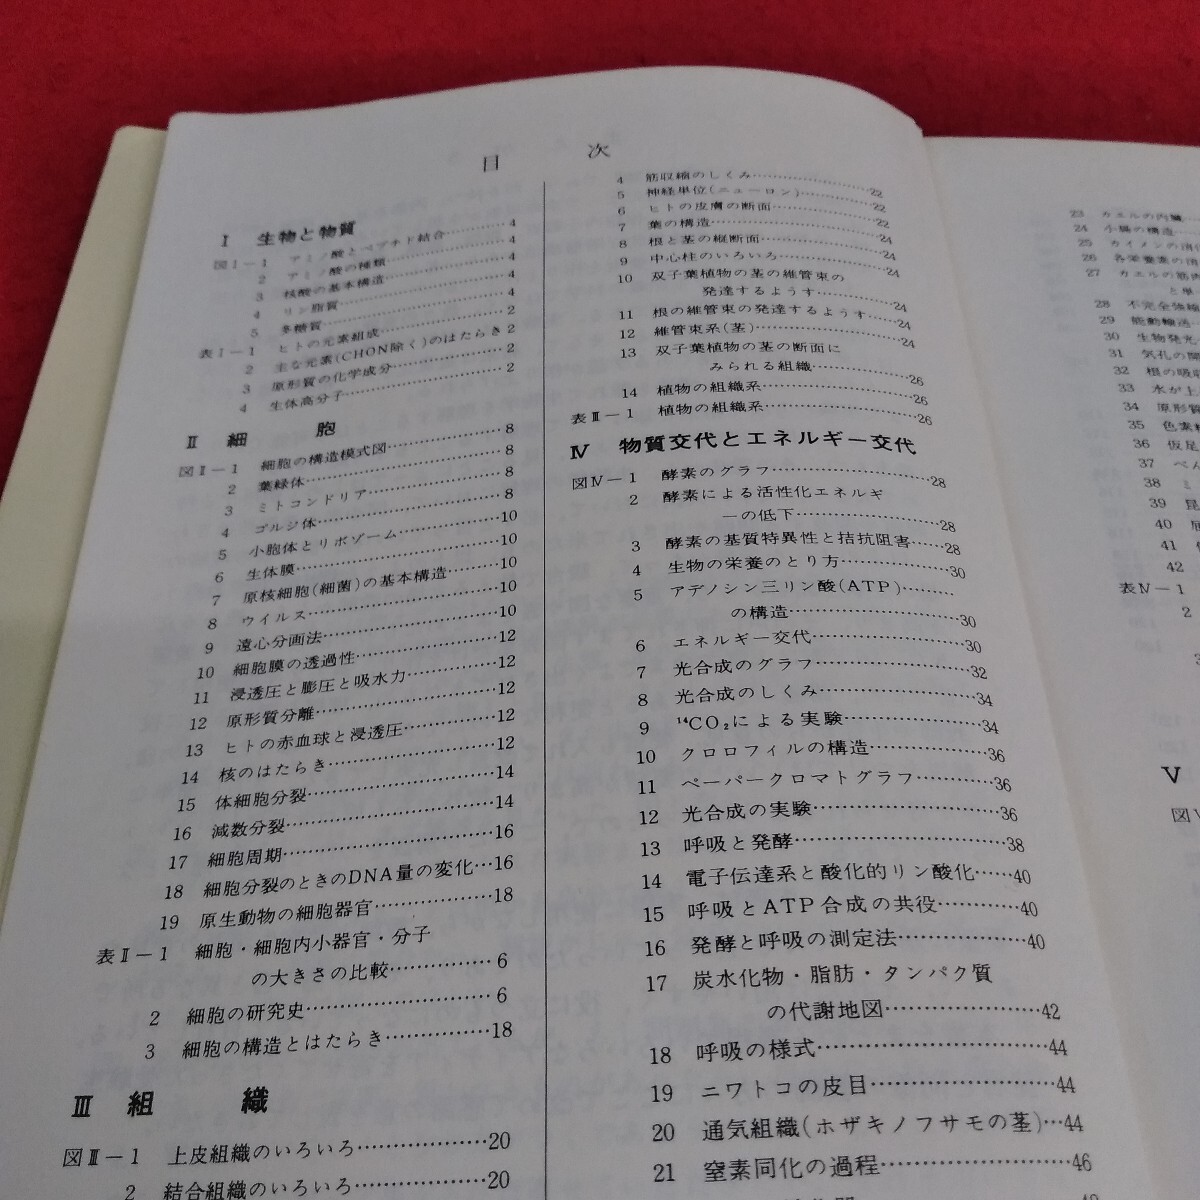 目 次
Ⅰ 生物と物質
図Ⅰ－1 アミノ酸とペプチド結合…………4
2 アミノ酸の種類…………4
3 核酸の基本構造…………4
4 リン脂質…………4
5 多糖質…………4
表Ⅰ－1 ヒトの元素組成…………2
2 主な元素(CHON除く)のはたらき 2
3 原形質の化学成分…………2
4 生体高分子…………2
Ⅱ 細 胞
図Ⅱ－1 細胞の構造模式図…………8
2 葉緑体…………8
3 ミトコンドリア…………8
4 ゴルジ体…………8
5 小胞体とリボゾーム…………10
6 生体膜…………10
7 原核細胞(細菌)の基本構造…………10
8 ウイルス…………10
9 遠心分画法…………10
10 細胞膜の透過性…………12
11 浸透圧と膨圧と吸水力…………12
12 原形質分離…………12
13 ヒトの赤血球と浸透圧…………12
14 核のはたらき…………12
15 体細胞分裂…………14
16 減数分裂…………14
17 細胞周期…………16
18 細胞分裂のときのDNA量の変化…16
19 原生動物の細胞器官…………18
表Ⅱ－1 細胞・細胞内小器官・分子
の大きさの比較…………6
2 細胞の研究史…………6
3 細胞の構造とはたらき…………18
Ⅲ 組 織
図Ⅲ－1 上皮組織のいろいろ…………20
2 結合組織のいろいろ…………20
4 筋収縮のしくみ…………22
5 神経単位(ニューロン)…………22
6 ヒトの皮膚の断面…………22
7 葉の構造…………24
8 根と茎の縦断面…………24
9 中心柱のいろいろ…………24
10 双子葉植物の茎の維管束の
発達するようす…………24
11 根の維管束の発達するようす…………24
12 維管束系(茎)…………24
13 双子葉植物の茎の断面に
みられる組織…………26
14 植物の組織系…………26
表Ⅲ－1 植物の組織系…………26
Ⅳ 物質交代とエネルギー交代
図Ⅳ－1 酵素のグラフ…………28
2 酵素による活性化エネルギ
ーの低下…………28
3 酵素の基質特異性と拮抗阻害……28
4 生物の栄養のとり方…………30
5 アデノシン三リン酸(ATP)………
の構造…………30
6 エネルギー交代…………30
7 光合成のグラフ…………32
8 光合成のしくみ…………34
9 ¹⁴CO₂による実験…………34
10 クロロフィルの構造…………36
11 ペーパークロマトグラフ…………36
12 光合成の実験…………36
13 呼吸と発酵…………38
14 電子伝達系と酸化的リン酸化……40
15 呼吸とATP合成の共役…………40
16 発酵と呼吸の測定法…………40
17 炭水化物・脂肪・タンパク質
の代謝地図…………42
18 呼吸の様式…………44
19 ニワトコの皮目…………44
20 通気組織(ホザキノフサモの茎)…44
21 窒素同化の過程…………46
23 カエルの内臓
24 小腸の構造
25 カイメンの消
26 各栄養素の消
27 カエルの筋肉
と単
28 不完全強縮
29 能動輸送
30 生物発光
31 気孔の開
32 根の吸収
33 水が上
34 原形質
35 色素粒
36 仮足
37 べん
38 ミ
39 昆
40
41
42
表Ⅳ－1
2
Ⅴ
図Ⅴ